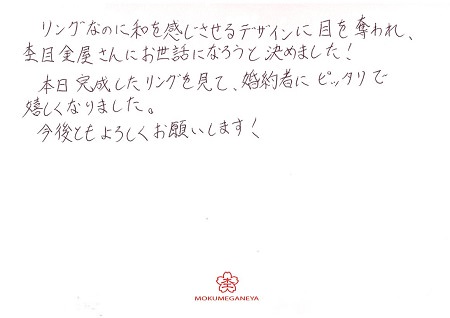 リングなのに和を感じさせるデザインに目を奪われ、
杢目金屋さんにお世話になろうと決めました!
本日完成したリングを見て、婚約者にピッタリで
嬉しくなりました。
今後ともよろしくお願いします!
杢
MOKUMEGANEYA